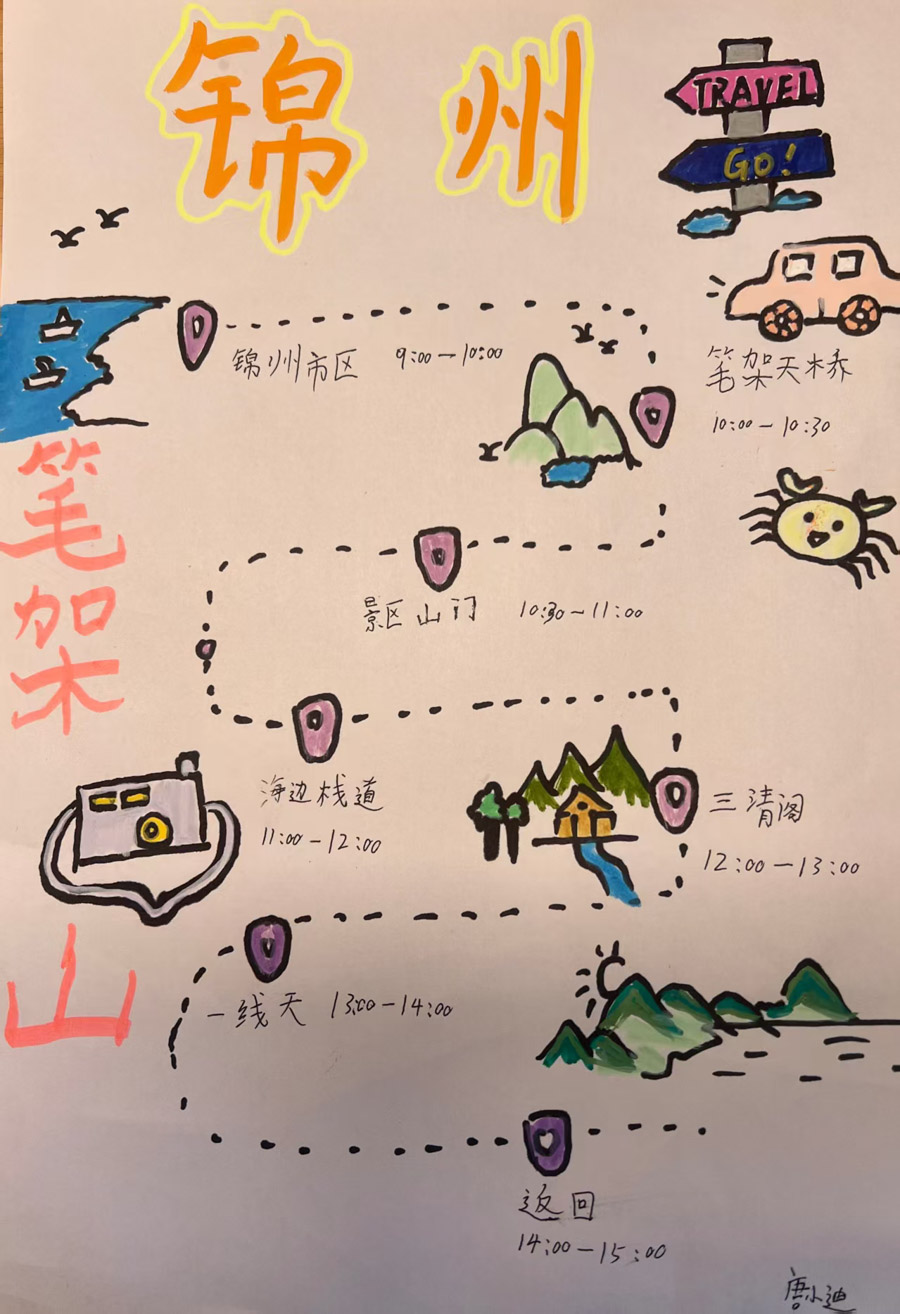 锦州
TRAVEL
GO!
笔架山
锦州市区 9:00-10:00
笔架天桥
10:00-10:30
景区山门 10:30-11:00
海边栈道
11:00-12:00
三清阁
12:00-13:00
一线天 13:00-14:00
返回
14:00-15:00
唐小迪